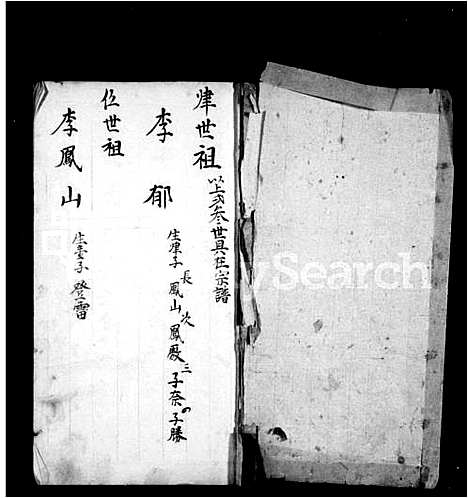 肆世祖
以上弍叁世具在宗譜
李郁
生肆子 長鳳山 次鳳 三子奈 四子勝
伍世祖
李鳳山
生壹子 登雷
MySearch